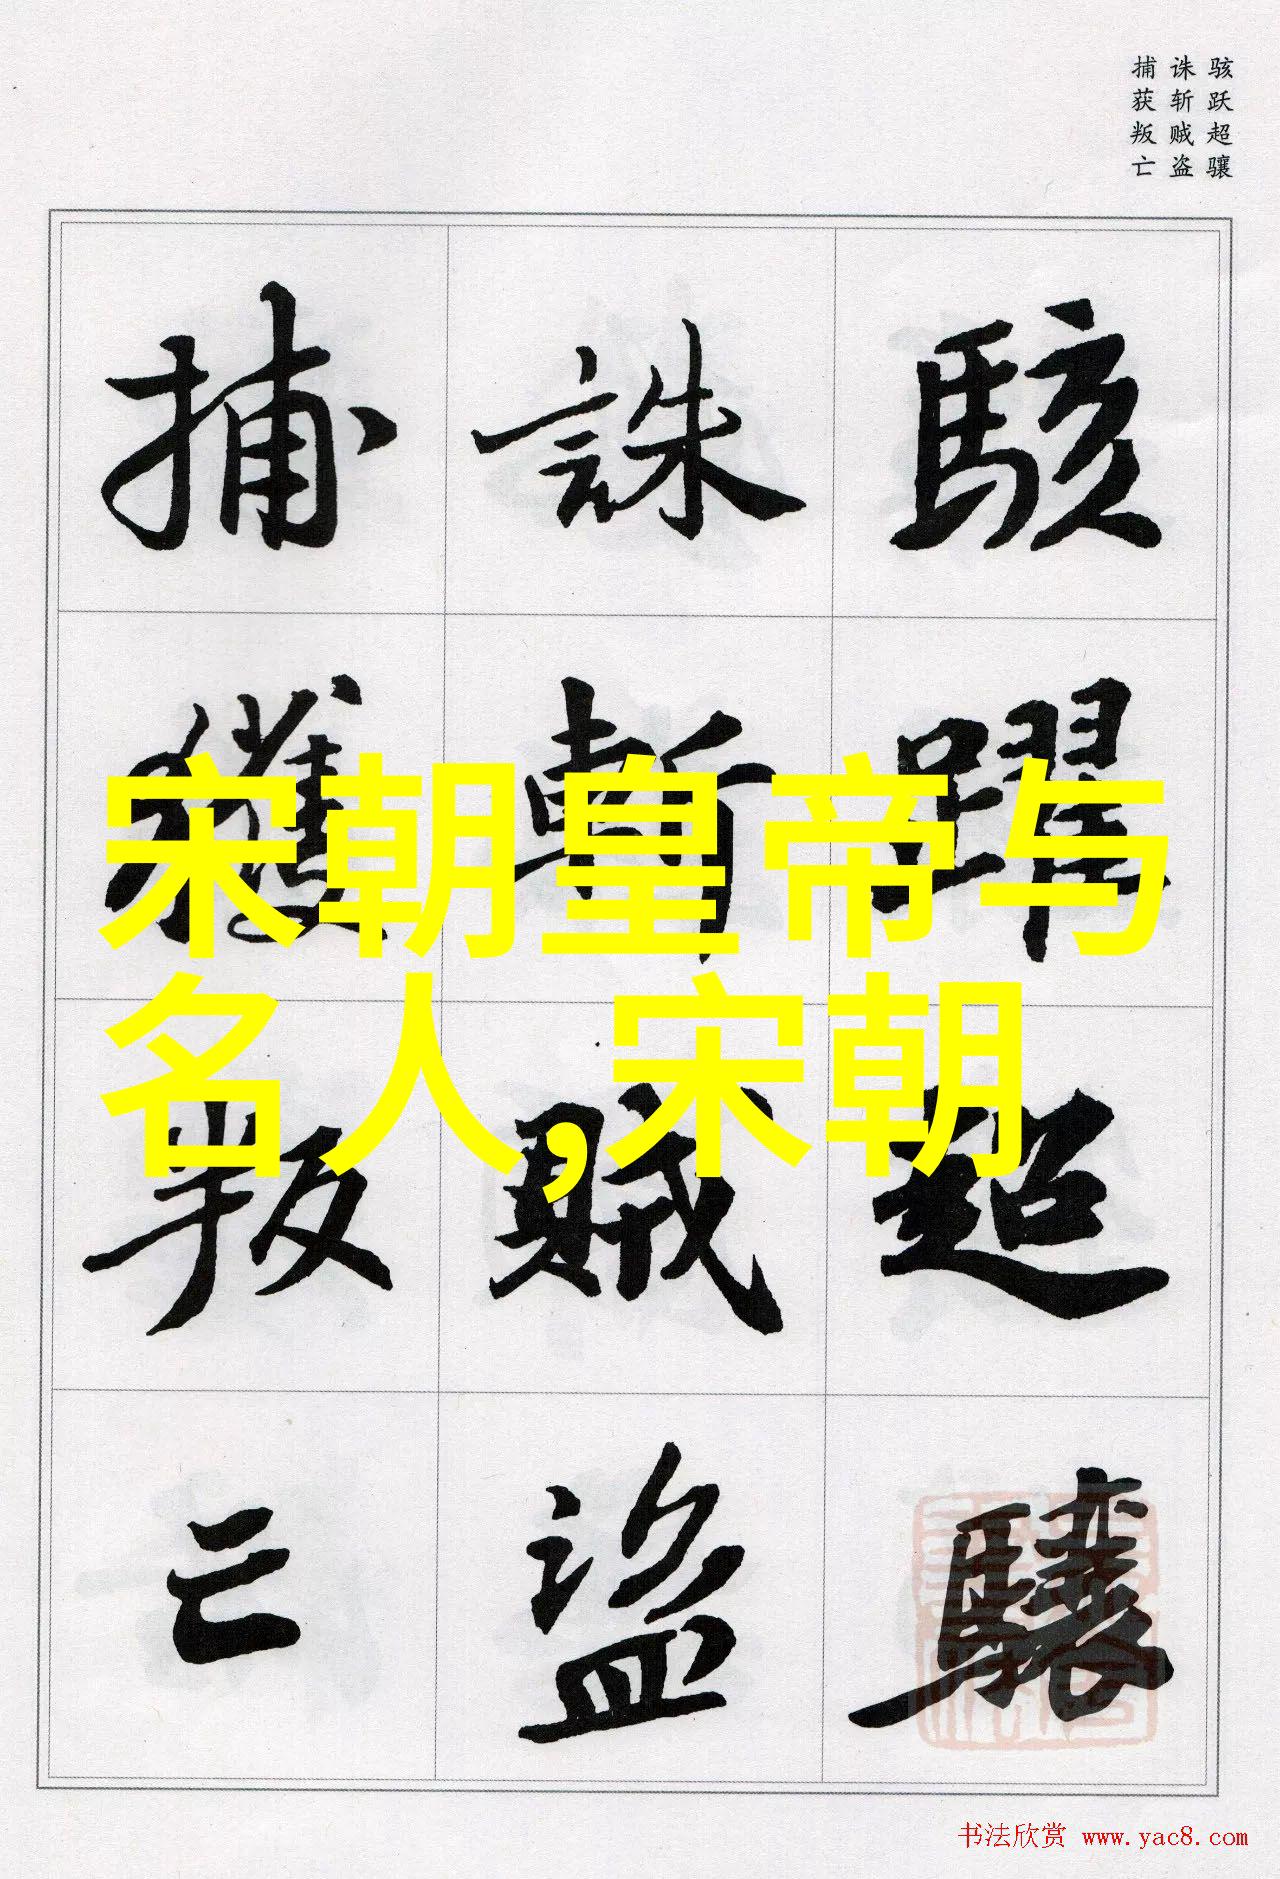 骇跃超骧
诛斩贼盗
捕获叛亡
駭躍超驤
誅斬賊盜
捕獲叛亡
宋朝皇帝与
名人,宋朝
书法欣赏 www.yac8.com